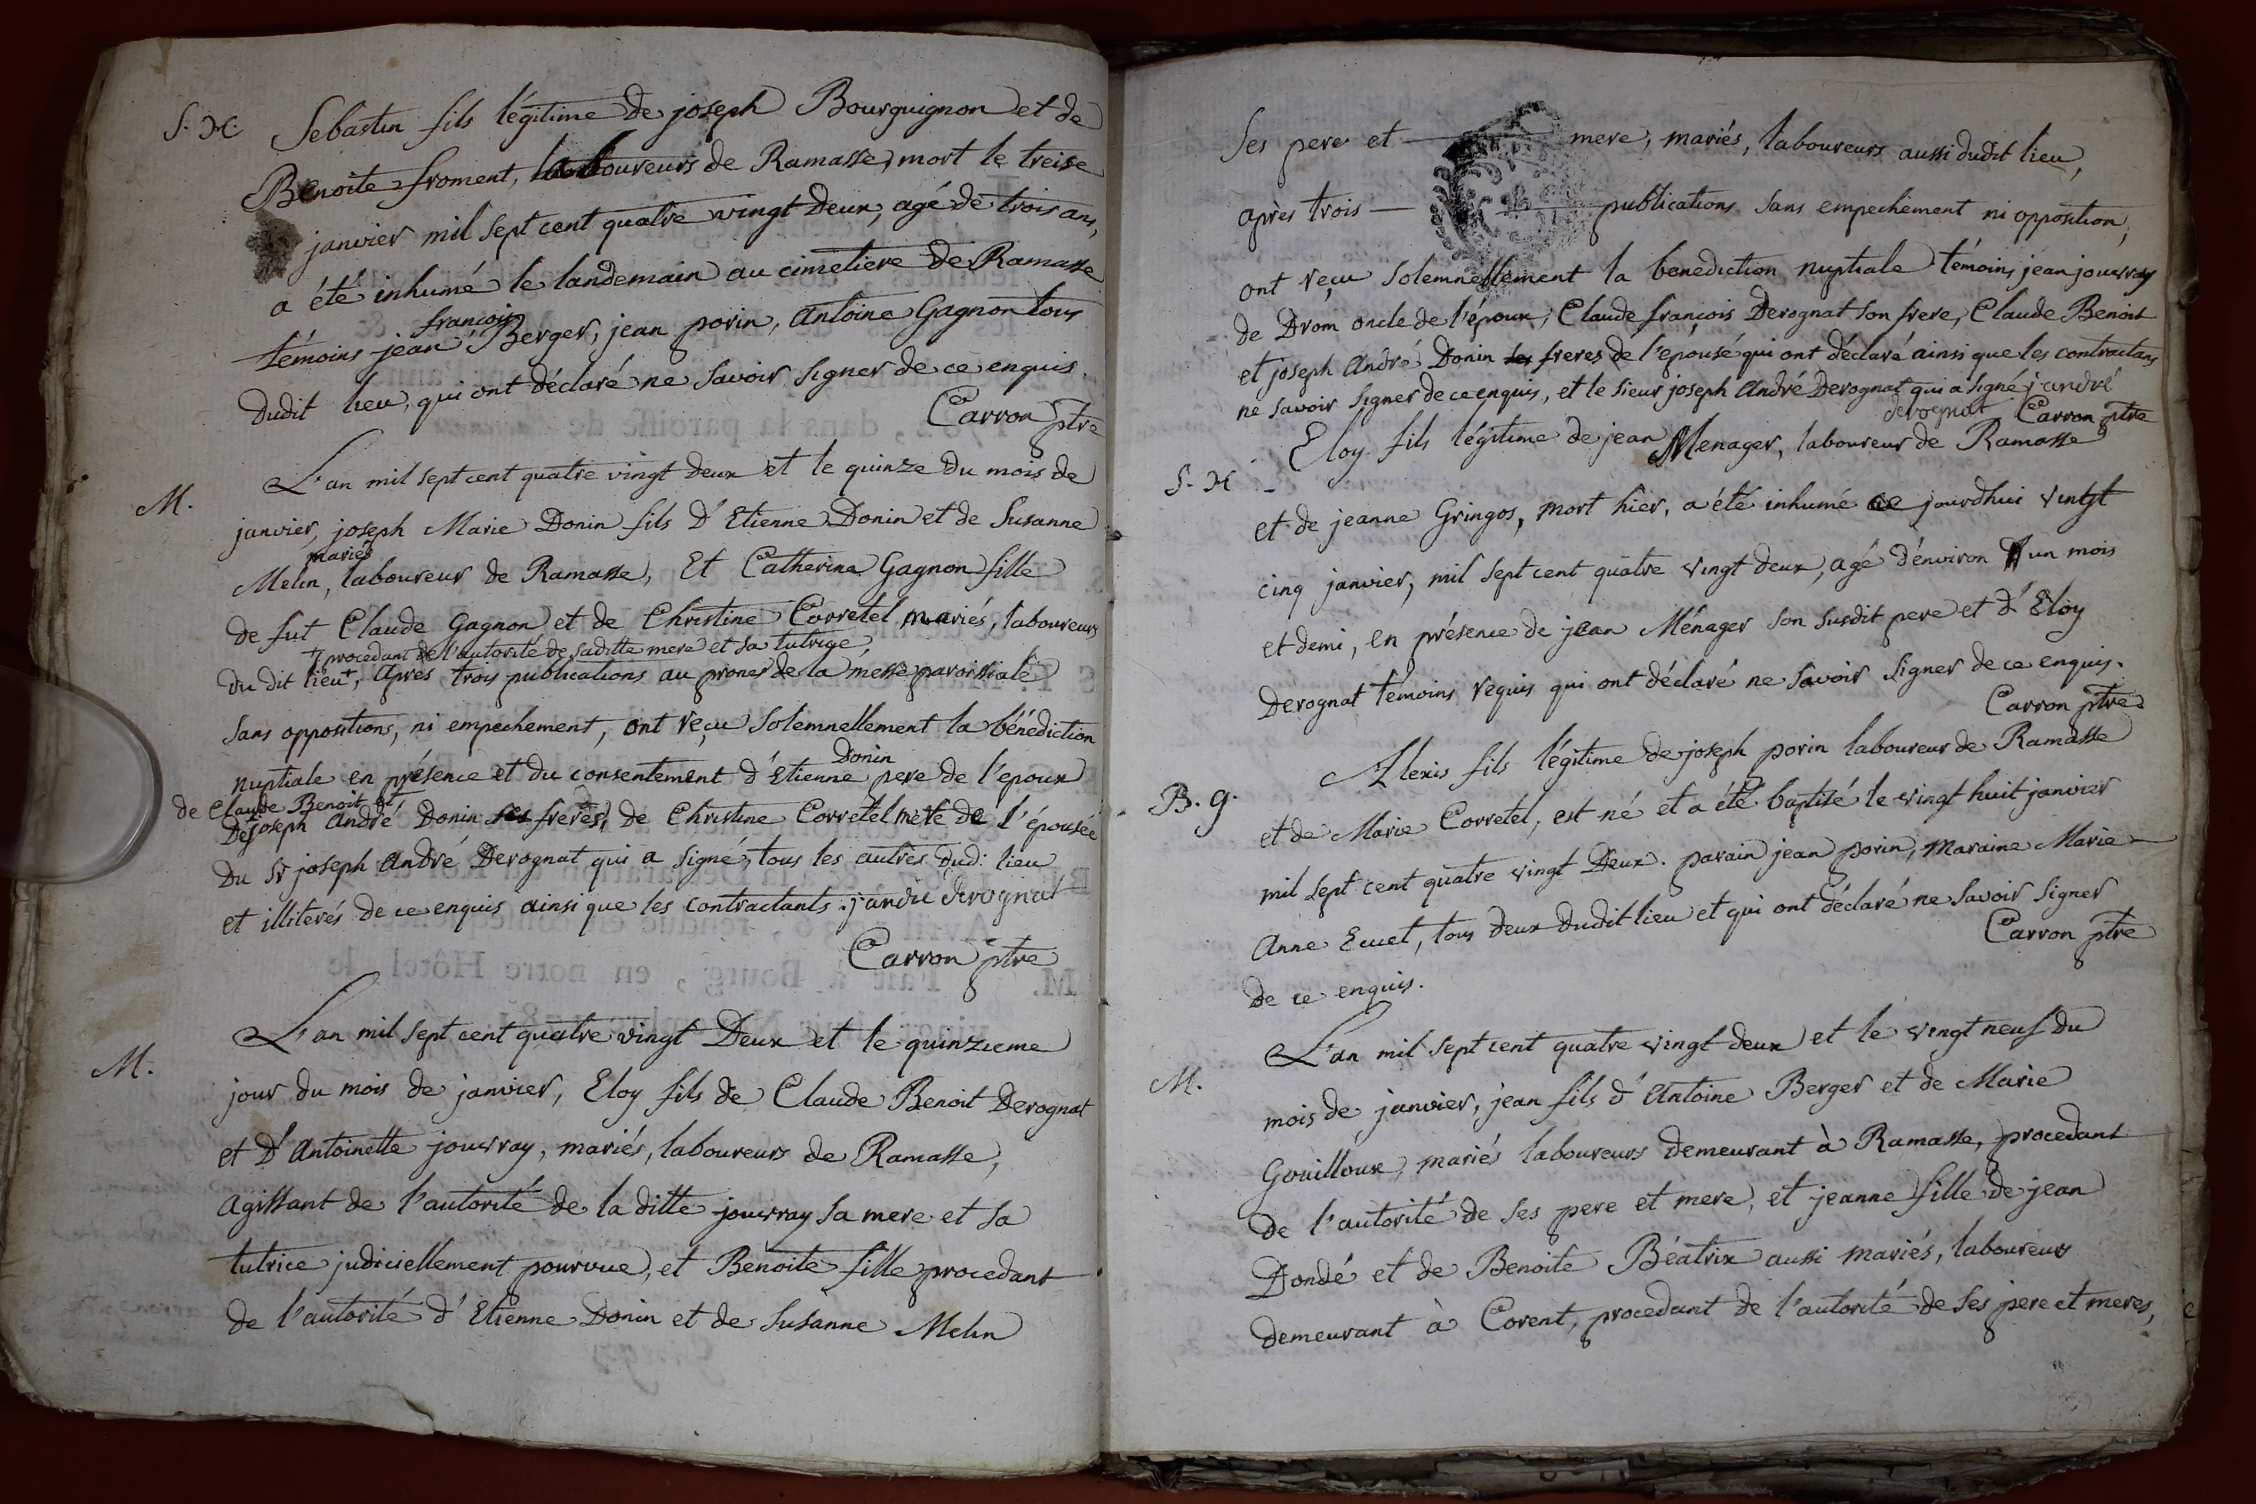 S. H Sebastin fils légitime de joseph Bourguignon et de
Benoite froment, laboureurs de Ramasse, mort le treise
janvier mil sept cent quatre vingt Deux, agé de trois ans,
a été inhumé le landemain au cimetiere de Ramasse
françois
témoins jean Berger, jean porin, Antoine Gagnon tous
dudit lieu, qui ont déclaré ne savoir signer de ce enquis.
Carron ptre
L'an mil sept cent quatre vingt Deux et le quinze du mois de
M.
janvier, joseph Marie Donin fils D'Etienne Donin et de Susanne
mariés
Melin, laboureur de Ramasse, Et Catherine Gagnon fille
de fut Claude Gagnon et de Christine Corretel mariés, laboureurs
+ procedant de l'autorité de saditte mere et sa tutrice,
du dit lieu+, Apres trois publications au prones de la messe paroissiale
sans oppositions, ni empechement, ont reçu solemnellement la bénédiction
Donin
nuptiale en présence et du consentement d'Etienne pere de l'epoux
de Claude Benoit et
De joseph André Donin ses freres, de Christine Corretel mere de l'épousée
Du Sr joseph André Derognat qui a signé, tous les autres dud: lieu
et illiterés de ce enquis ainsi que les contractants. j andré derognat
Carron ptre
L'an mil sept cent quatre vingt Deux et le quinzieme
M.
jour du mois de janvier, Eloy fils de Claude Benoit Derognat
et D'Antoinette jouvray, mariés, laboureurs de Ramasse,
agissant de l'autorité de la ditte jouvray sa mere et sa
tutrice judiciellement pourvue, et Benoite fille procedant
de l'autorité d'Etienne Donin et de Susanne Melin
ses pere et mere, mariés, laboureurs aussi dudit lieu,
après trois publications sans empechement ni opposition,
ont reçu solemnellement la benediction nuptiale témoins jean jouvray
de Drom oncle de l'époux, Claude françois Derognat son frere, Claude Benoit
et joseph André Donin les freres de l'epousé qui ont déclaré ainsi que les contractans
ne savoir signer de ce enquis, et le sieur joseph André Derognat qui a signé j andré
derognat Carron ptre
Eloy fils légitime de jean Menager, laboureur de Ramasse
S. H
et de jeanne Gringos, mort hier, a été inhumé ce jourdhui vingt
cinq janvier, mil sept cent quatre vingt deux, agé d'environ un mois
et demi, en présence de jean Ménager son susdit pere et d'Eloy
Derognat témoins requis qui ont déclaré ne savoir signer de ce enquis.
Carron ptre
Alexis fils légitime de joseph porin laboureur de Ramasse
B. 9.
et de Marie Corretel, est né et a été baptisé le vingt huit janvier
mil sept cent quatre vingt Deux. parain jean porin, maraine Marie
Anne Ecuet, tous deux dudit lieu et qui ont déclaré ne savoir signer
Carron ptre
de ce enquis.
L'an mil sept cent quatre vingt deux et le vingt neuf du
M.
mois de janvier, jean fils d'Antoine Berger et de Marie
Gouilloux, mariés laboureurs demeurant à Ramasse, procedant
de l'autorité de ses pere et mere, et jeanne fille de jean
Dondé et de Benoite Béatrix aussi mariés, laboureurs
demeurant à Corent, procedant de l'autorité de ses pere et meres,